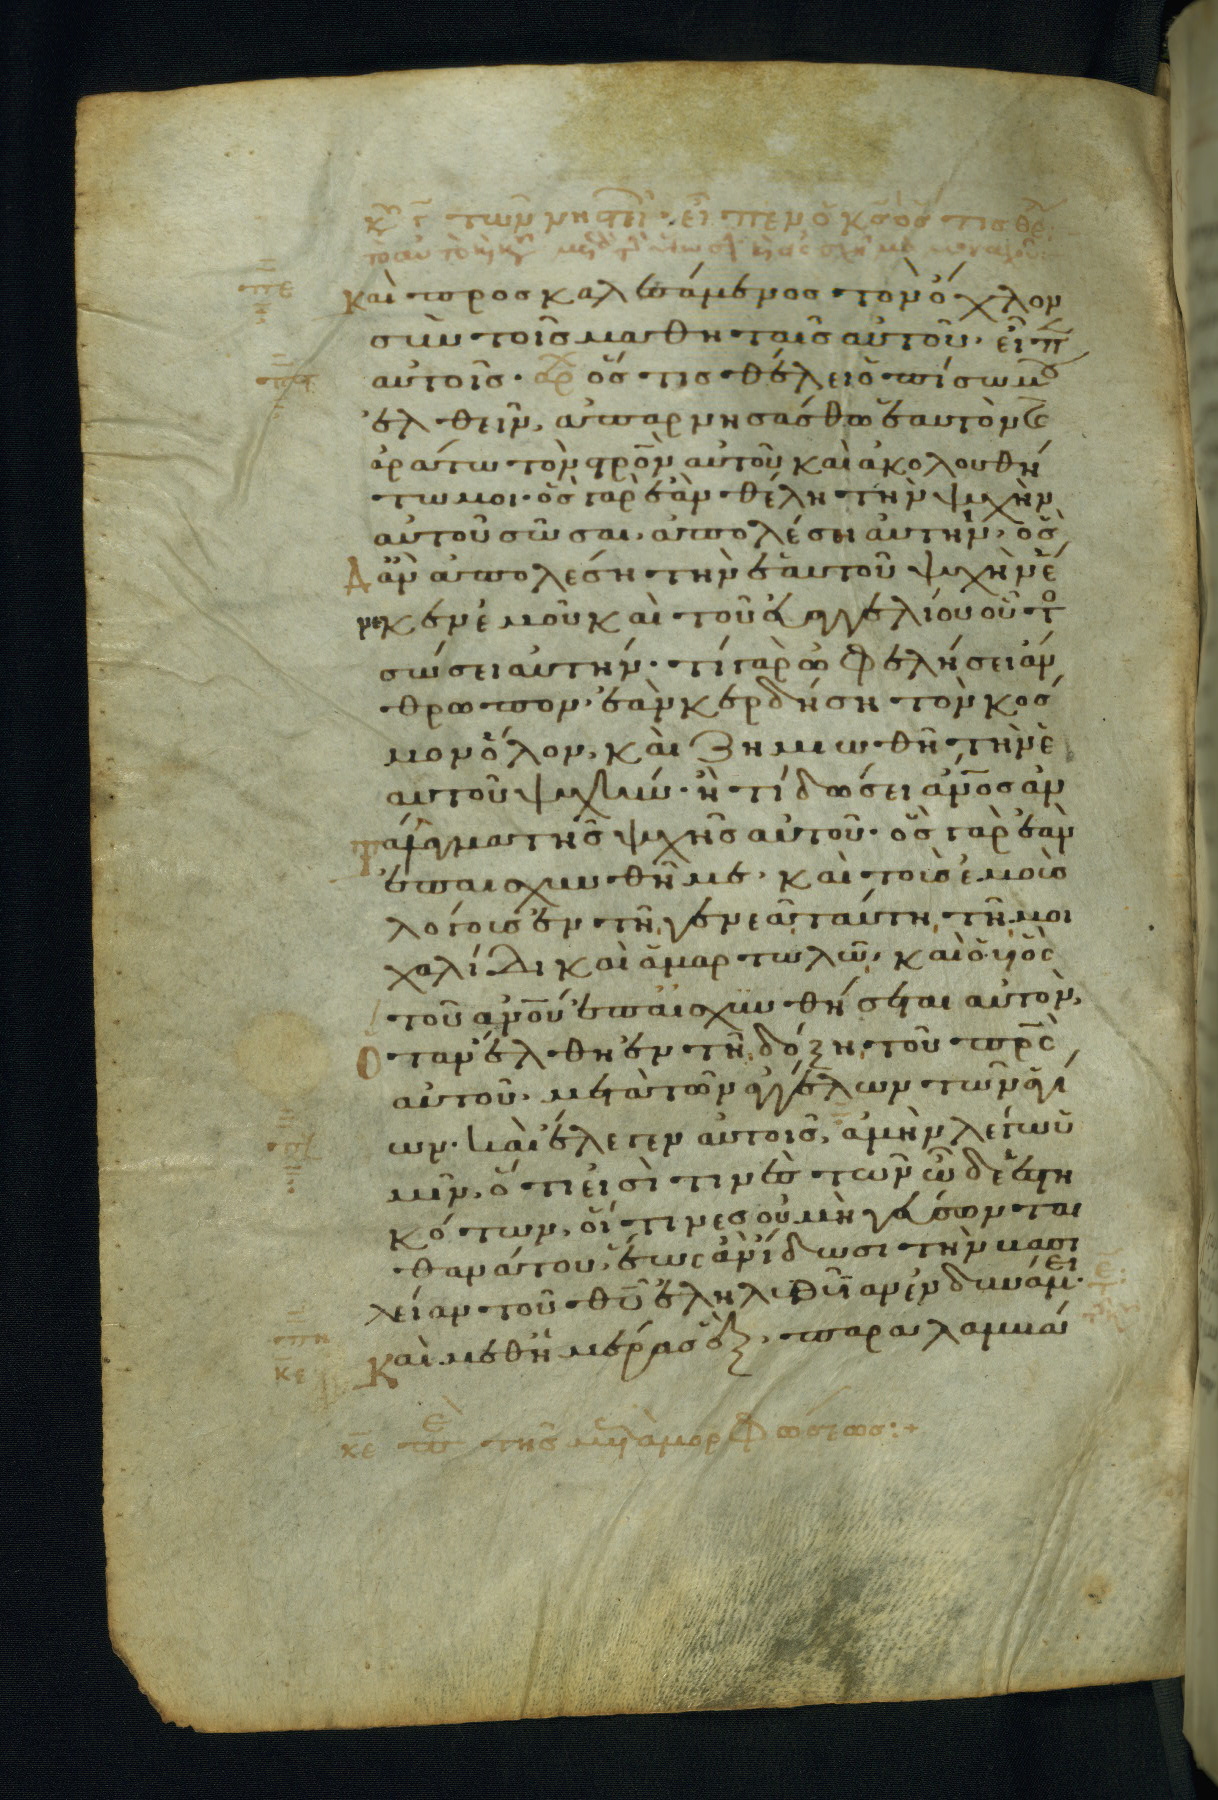 κυ Γ τῶν νηστει· εἶπεν ὁ κς ὅστις θε
καὶ προσκαλεσάμενος τὸν ὄχλον
σὺν τοῖς μαθηταῖς αὐτοῦ· εἶπ
αὐτοῖς· αρχ ὅστις θέλει ὀπίσω μου
ἐλθεῖν, ἀπαρνησάσθω ἑαυτὸν καὶ
ἀράτω τὸν στρον αὐτοῦ καὶ ἀκολουθεί
τω μοι· ὃς γὰρ ἐὰν θέλη τὴν ψυχὴν
αὐτοῦ σῶσαι, ἀπολέσει αὐτήν, ὃς δ
ἂν ἀπολέση τὴν ἑαυτοῦ ψυχὴν ἕ
νεκεν ἐμοῦ καὶ τοῦ εὐαγγελίου οὗτο
σώσει αὐτήν· τί γὰρ ὠφελήσει ἄν
θρωπον, ἐὰν κερδήση τὸν κόσ
μον ὅλον, καὶ ζημιωθῆ τὴν ἑ
αυτοῦ ψυχήν· ἢ τί δώσει ἀνος ἀν
τάλλαγμα τῆς ψυχῆς αὐτοῦ· ὃς γὰρ ἐὰν
ἐπαισχυνθῆ με, καὶ τοὺς ἐμοὺς
λόγους ἐν τῆ γενεᾶ ταύτη τῆ μοι
χαλίδι καὶ ἁμαρτωλῶ, καὶ ὁ υἱὸς
τοῦ ανου ἐπαισχυνθήσεται αὐτὸν,
ὅταν ἔλθη ἐν τῆ δόξη τοῦ πρς
αὐτοῦ, μετὰ τῶν ἀγγέλων τῶν ἁγί
ων· καὶ ἔλεγεν αὐτοῖς, ἀμὴν λέγω ὑ
μῖν, ὅτι εἰσὶ τινὲς τῶν ὧδε ἑστη
κότων, οἵτινες οὐ μὴ γεύσωνται
θανάτου, ἕως ἂν ἴδωσι τὴν βασι
λείαν τοῦ θυ ἐληλυθυῖαν ἐν δυνάμει·
καὶ μεθ ἡμέρας ἓξ, παραλαμβά
κε περὶ τῆς μεταμορφώσεως:+